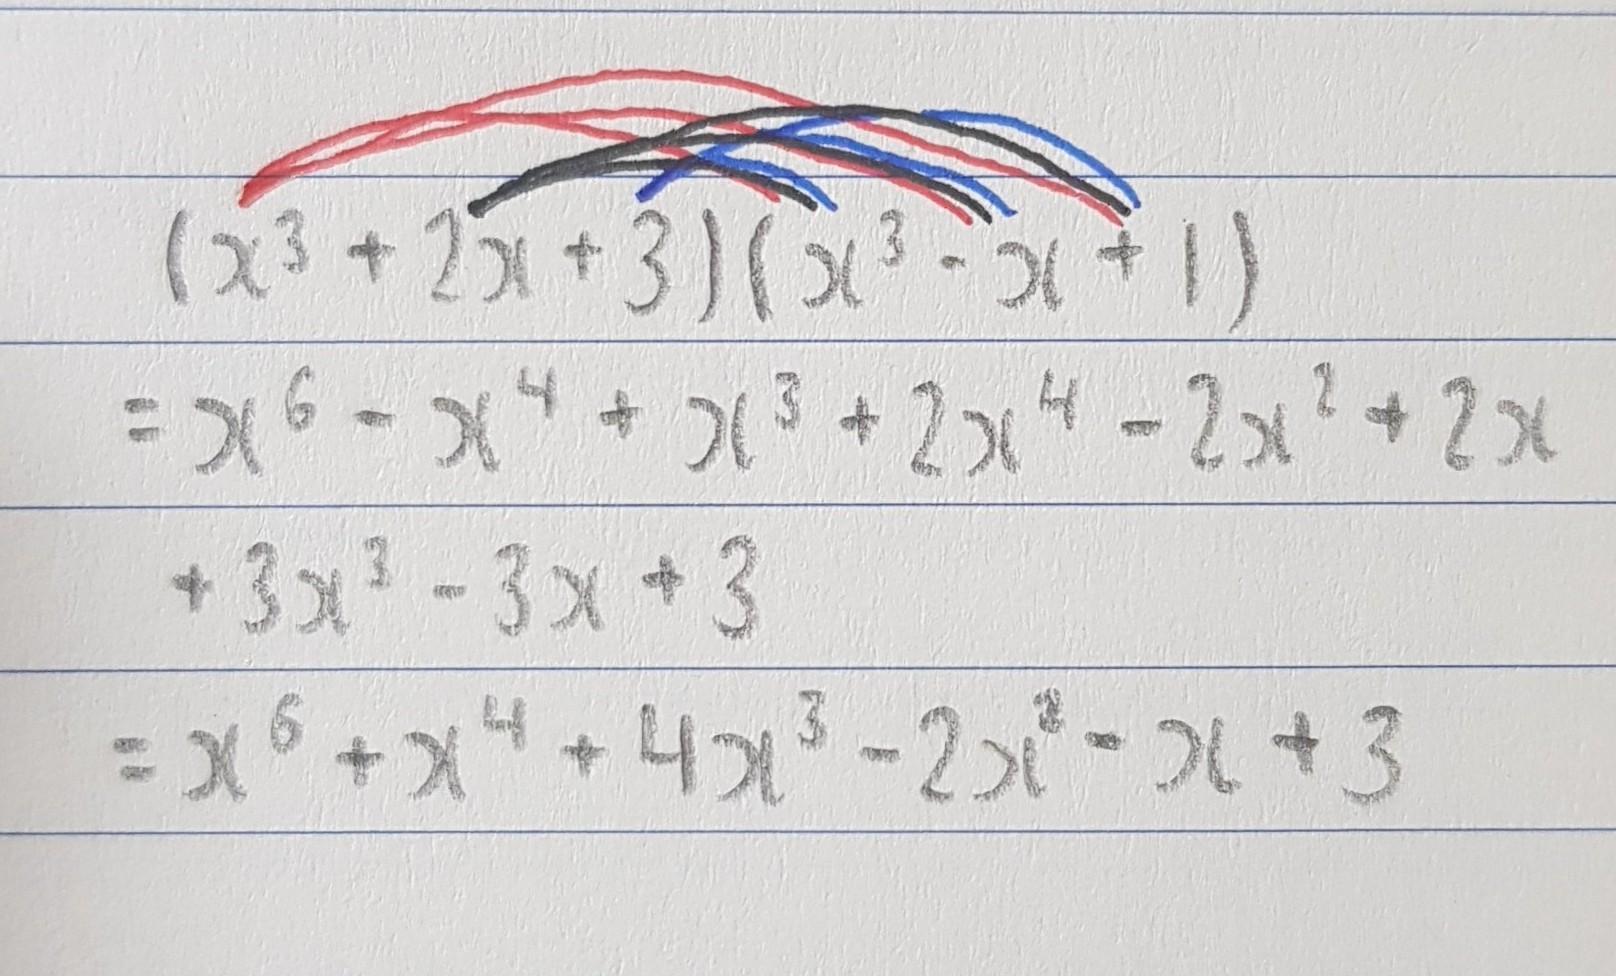 (x³ + 2x + 3)(x³ - x + 1)
= x⁶ - x⁴ + x³ + 2x⁴ - 2x² + 2x
+ 3x³ - 3x + 3
= x⁶ + x⁴ + 4x³ - 2x² - x + 3